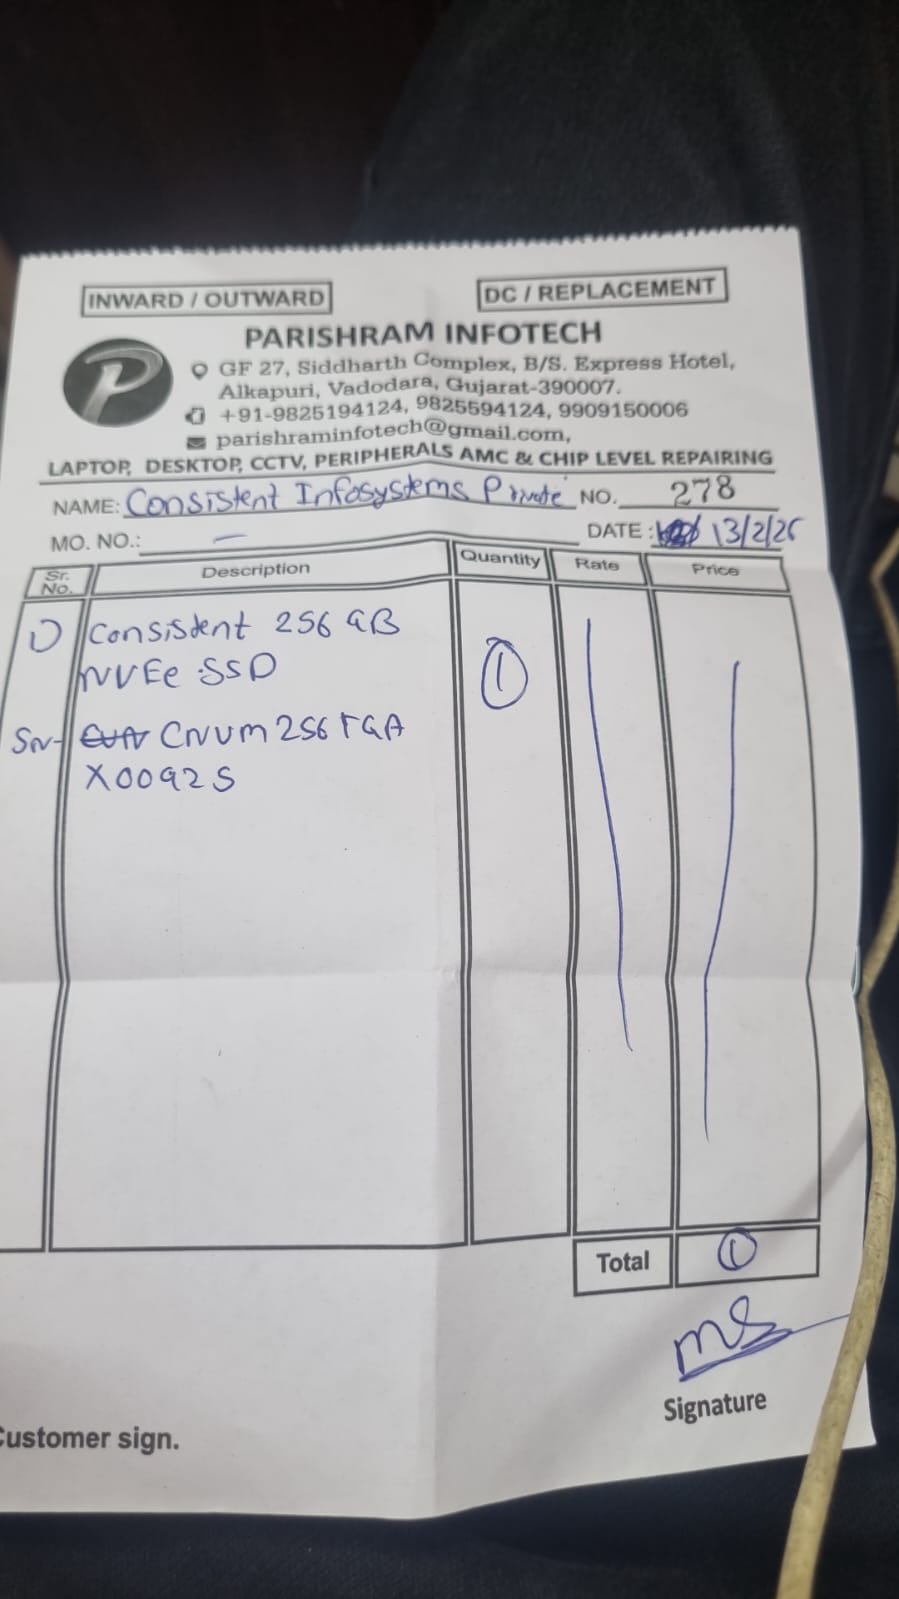 INWARD / OUTWARD
DC / REPLACEMENT
PARISHRAM INFOTECH
GF 27, Siddharth Complex, B/S. Express Hotel,
Alkapuri, Vadodara, Gujarat-390007.
+91-9825194124, 9825594124, 9909150006
parishraminfotech@gmail.com,
LAPTOP, DESKTOP, CCTV, PERIPHERALS AMC & CHIP LEVEL REPAIRING
NAME: Consistent Infosystems Private NO. 278
MO. NO.: —
DATE : 13/2/26
Sr. No. Description Quantity Rate Price
1) Consistent 256 GB 1
NVEe SSD
SN- CNVM256TGA
X00925
Total 1
ms
Signature
Customer sign.